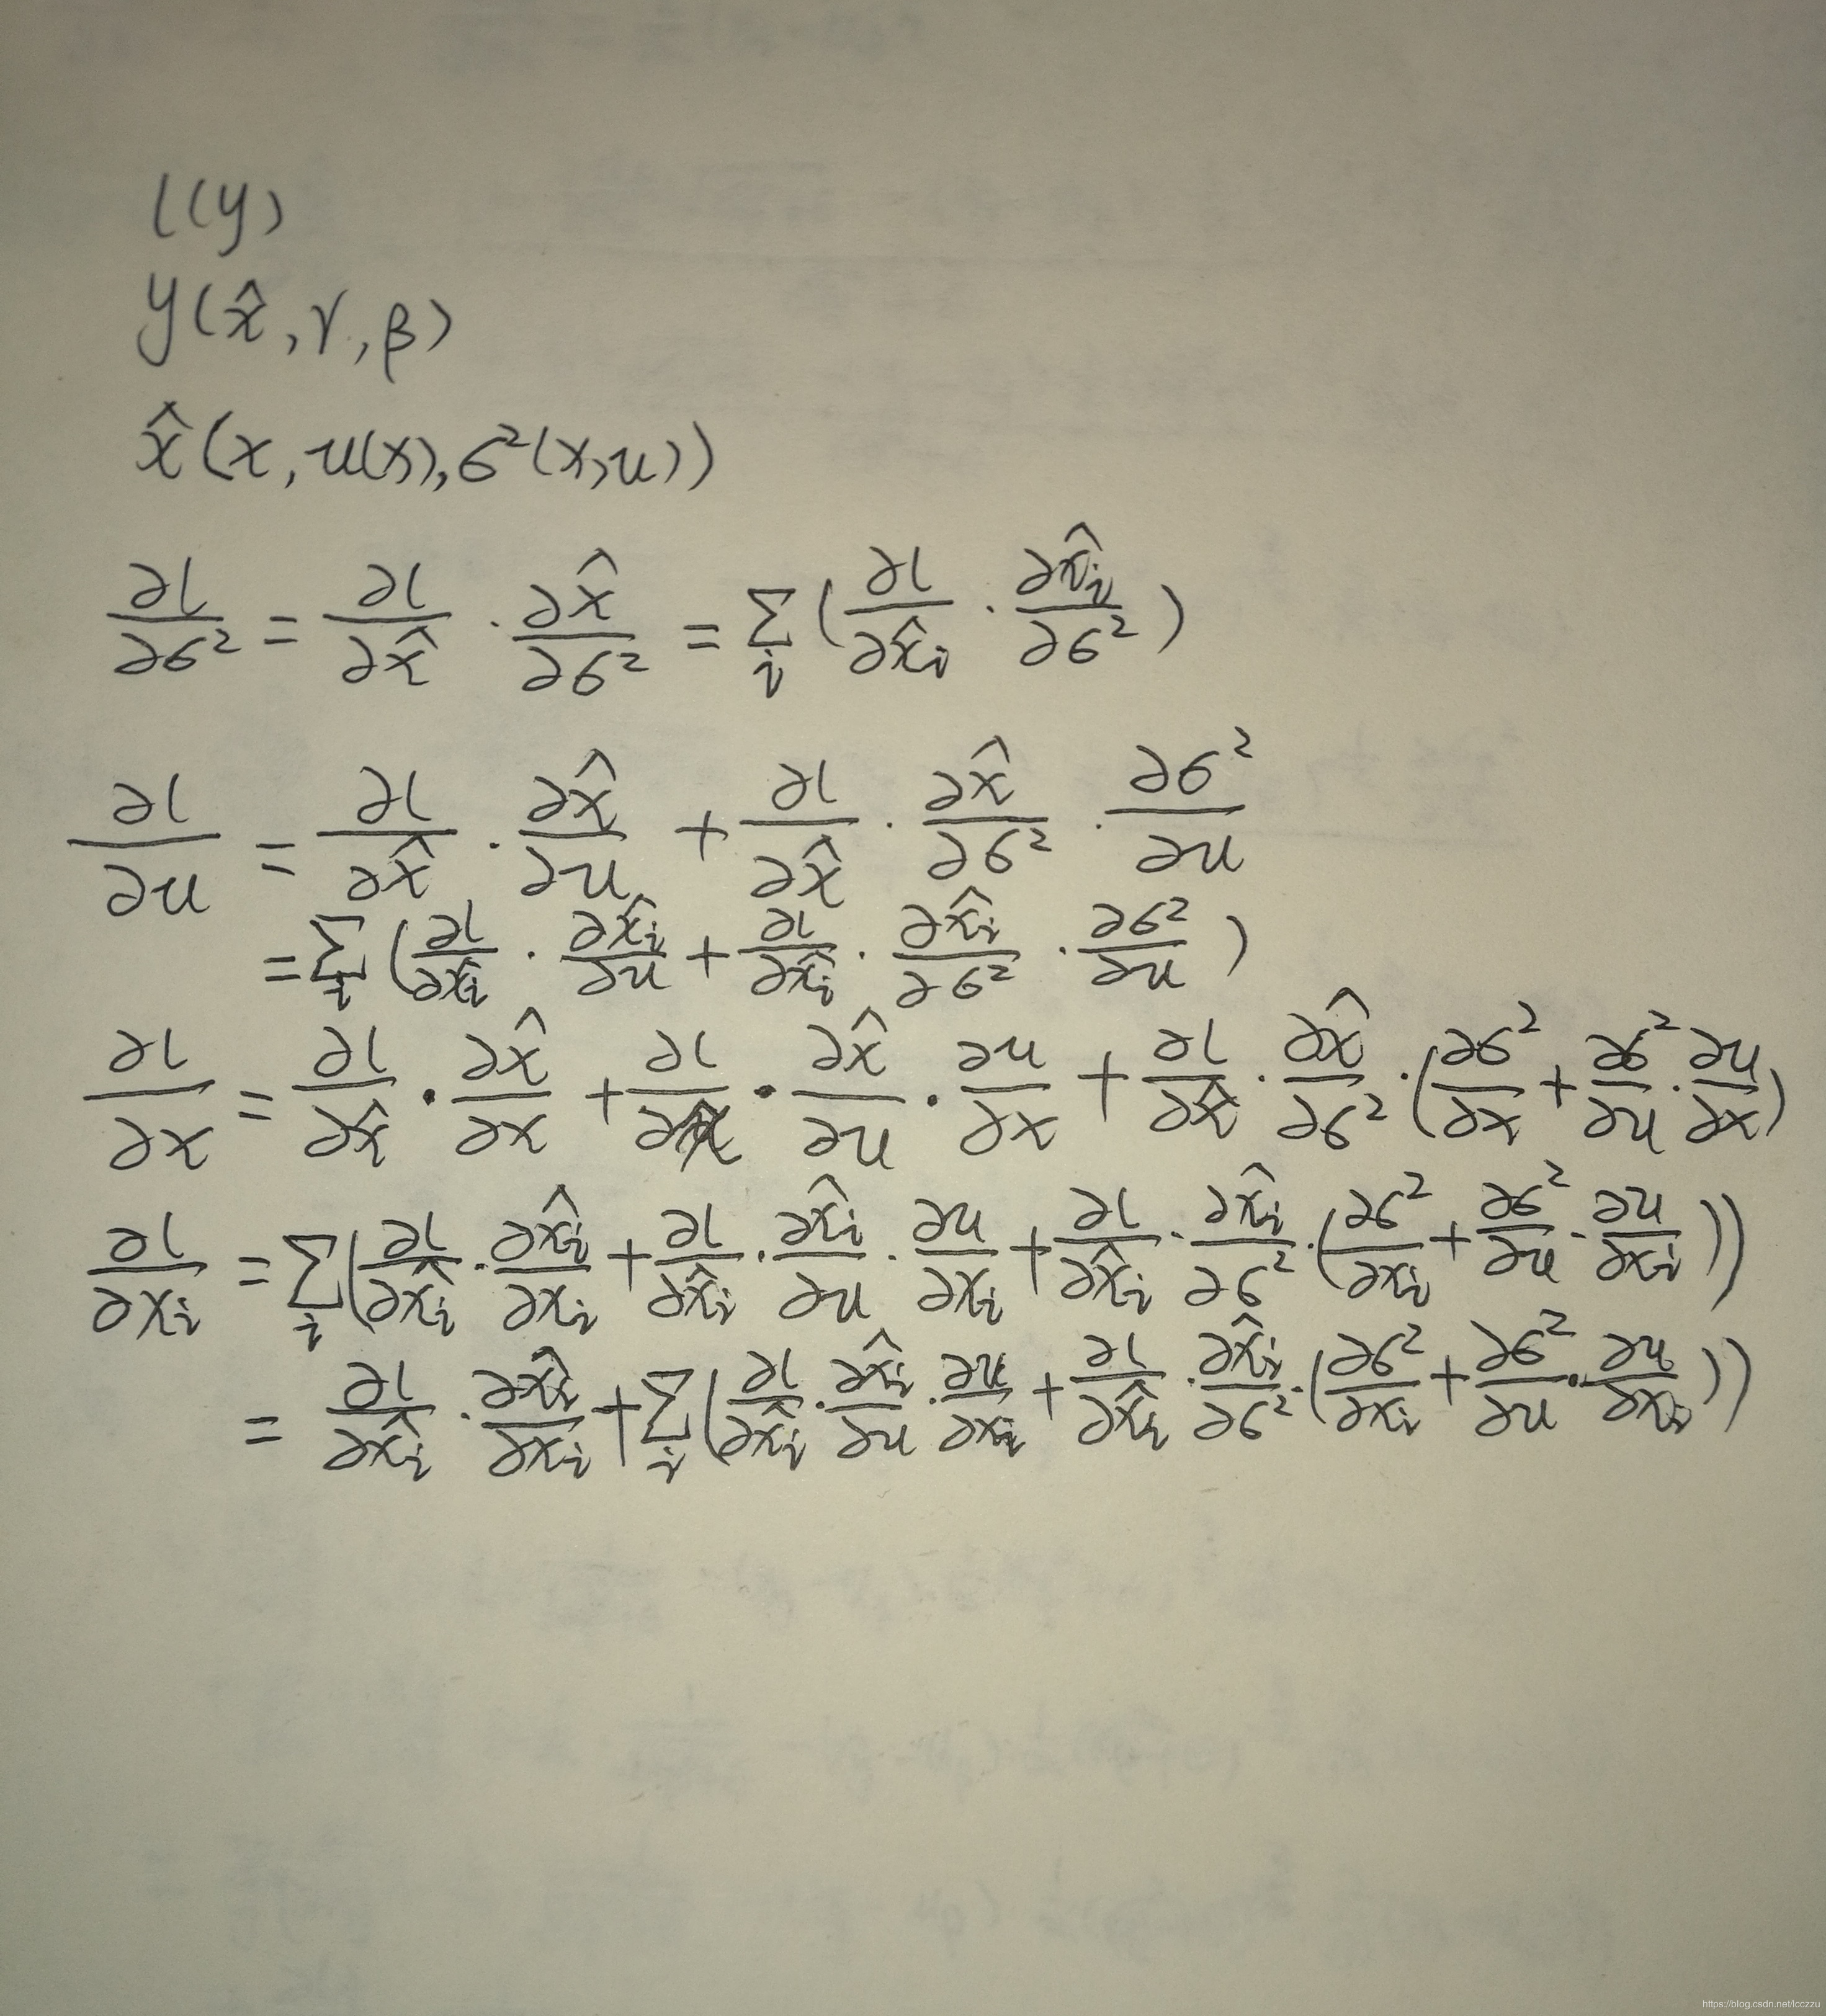 l(y)
y(x̂, γ, β)
x̂(x, u(x), σ²(x,u))
∂l/∂σ² = ∂l/∂x̂ · ∂x̂/∂σ² = Σ_i (∂l/∂x̂_i · ∂x̂_i/∂σ²)
∂l/∂u = ∂l/∂x̂ · ∂x̂/∂u + ∂l/∂x̂ · ∂x̂/∂σ² · ∂σ²/∂u
= Σ_i (∂l/∂x̂_i · ∂x̂_i/∂u + ∂l/∂x̂_i · ∂x̂_i/∂σ² · ∂σ²/∂u)
∂l/∂x = ∂l/∂x̂ · ∂x̂/∂x + ∂l/∂x̂ · ∂x̂/∂u · ∂u/∂x + ∂l/∂x̂ · ∂x̂/∂σ² · (∂σ²/∂x + ∂σ²/∂u · ∂u/∂x)
∂l/∂x_i = Σ_i (∂l/∂x̂_i · ∂x̂_i/∂x_i + ∂l/∂x̂_i · ∂x̂_i/∂u · ∂u/∂x_i + ∂l/∂x̂_i · ∂x̂_i/∂σ² · (∂σ²/∂x_i + ∂σ²/∂u · ∂u/∂x_i))
= ∂l/∂x̂_i · ∂x̂_i/∂x_i + Σ_i (∂l/∂x̂_i · ∂x̂_i/∂u · ∂u/∂x_i + ∂l/∂x̂_i · ∂x̂_i/∂σ² · (∂σ²/∂x_i + ∂σ²/∂u · ∂u/∂x_i))
https://blog.csdn.net/lcczzu